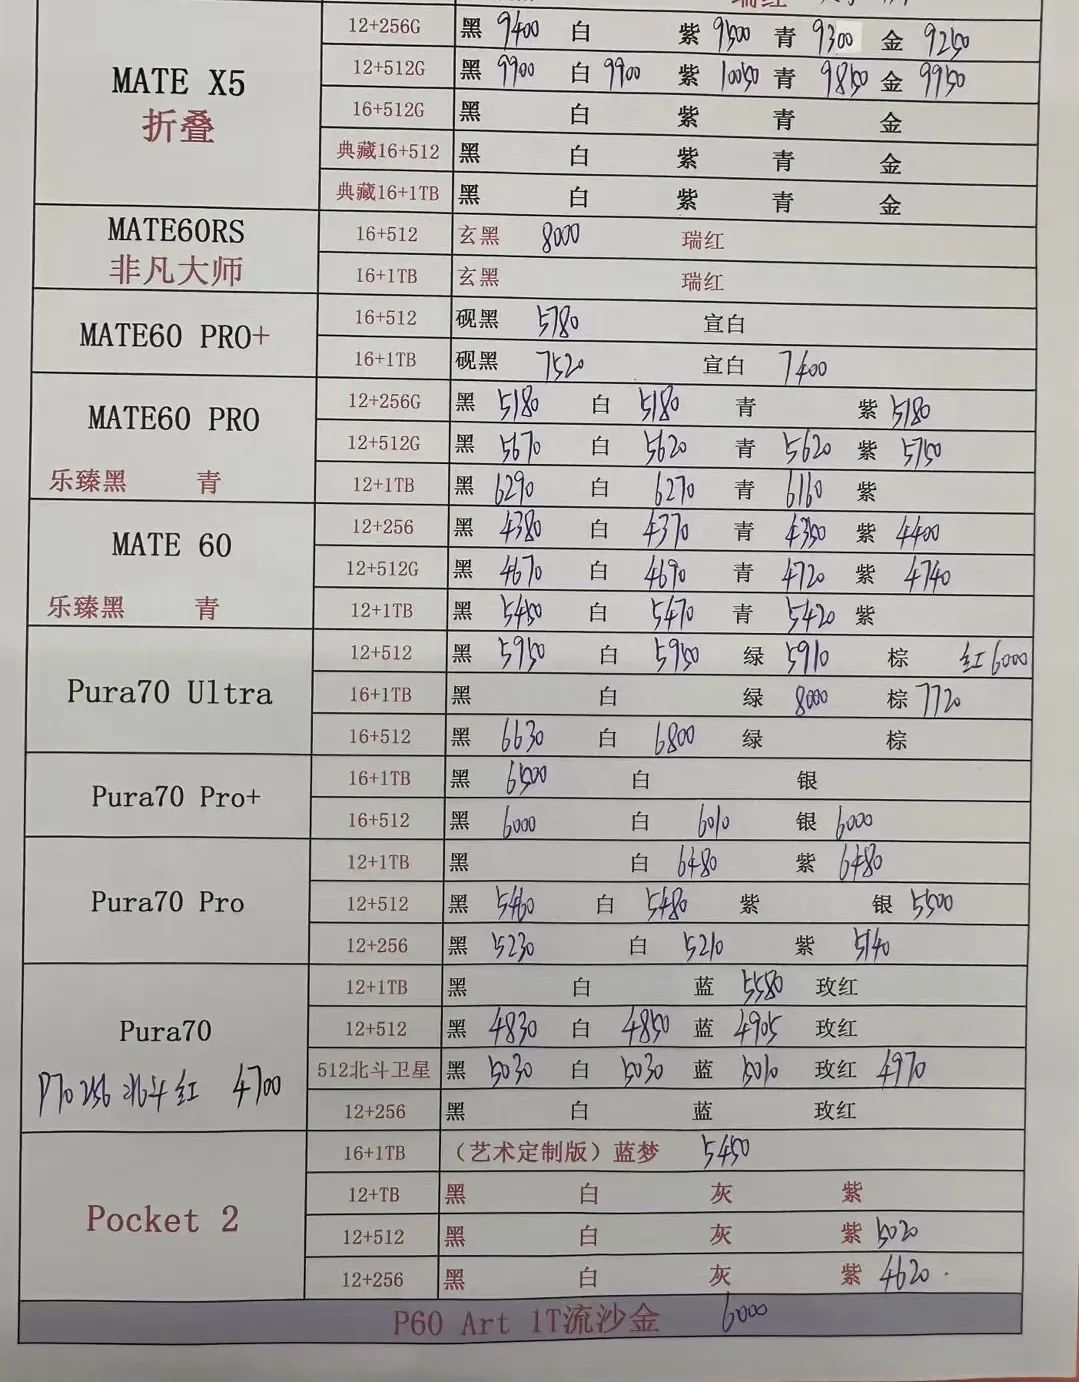 瑞红
12+256G 黑 9400 白 紫 9500 青 9300 金 9250
MATE X5 12+512G 黑 9900 白 9900 紫 10050 青 9850 金 9950
折叠 16+512G 黑 白 紫 青 金
典藏16+512 黑 白 紫 青 金
典藏16+1TB 黑 白 紫 青 金
MATE60RS 16+512 玄黑 8000 瑞红
非凡大师 16+1TB 玄黑 瑞红
MATE60 PRO+ 16+512 砚黑 5780 宣白
16+1TB 砚黑 7520 宣白 7400
MATE60 PRO 12+256G 黑 5180 白 5180 青 紫 5180
12+512G 黑 5670 白 5620 青 5620 紫 5750
乐臻黑 青 12+1TB 黑 6290 白 6270 青 6160 紫
MATE 60 12+256 黑 4380 白 4370 青 4350 紫 4400
12+512G 黑 4670 白 4690 青 4720 紫 4740
乐臻黑 青 12+1TB 黑 5450 白 5470 青 5420 紫
12+512 黑 5950 白 5950 绿 5910 棕 红 6000
Pura70 Ultra 16+1TB 黑 白 绿 8000 棕 7720
16+512 黑 6630 白 6800 绿 棕
Pura70 Pro+ 16+1TB 黑 6500 白 银
16+512 黑 6000 白 6010 银 6000
12+1TB 黑 白 6480 紫 6480
Pura70 Pro 12+512 黑 5460 白 5480 紫 银 5500
12+256 黑 5230 白 5210 紫 5140
12+1TB 黑 白 蓝 5580 玫红
Pura70 12+512 黑 4830 白 4850 蓝 4905 玫红
P70 256 北斗 红 4700 512北斗卫星 黑 5030 白 5030 蓝 5010 玫红 4970
12+256 黑 白 蓝 玫红
16+1TB (艺术定制版)蓝梦 5450
Pocket 2 12+TB 黑 白 灰 紫
12+512 黑 白 灰 紫 5020
12+256 黑 白 灰 紫 4620
P60 Art 1T流沙金 6000